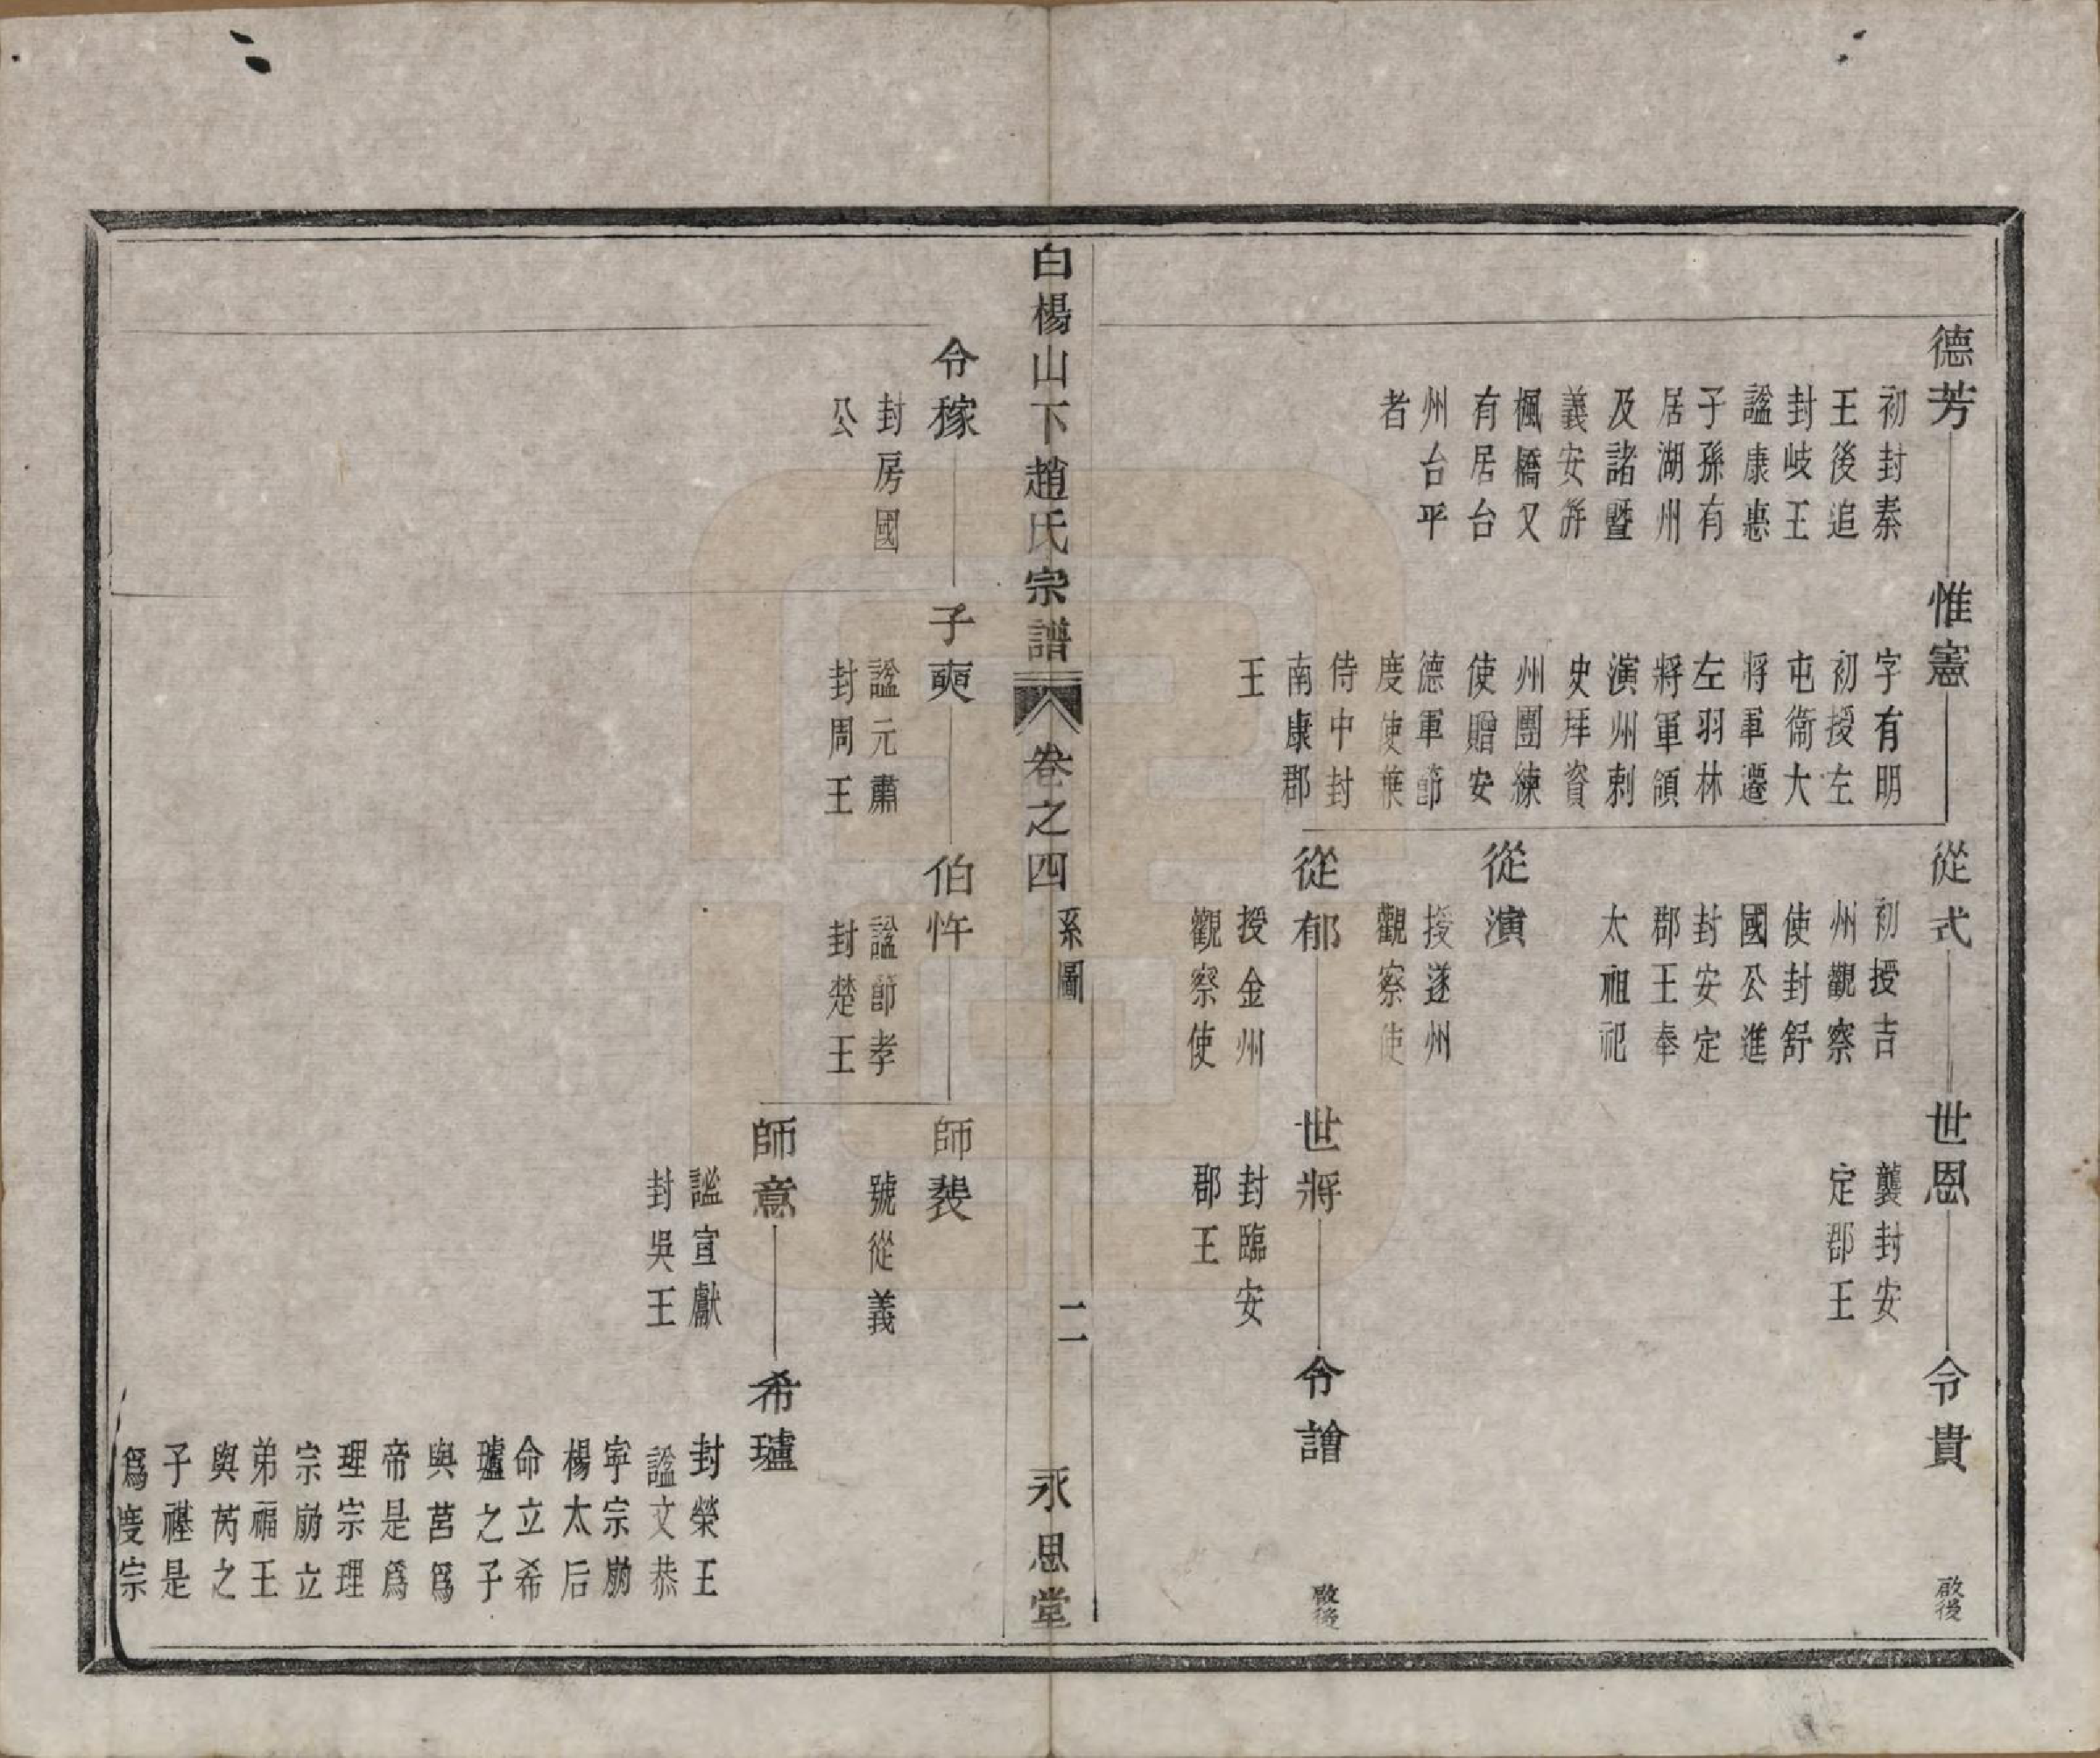 德芳
初封秦
王後追
封岐王
諡康惠
子孫有
居湖州
及諸暨
義安
楓橋又
有居台
州台平
者
惟憲
字有明
初授左
屯衞大
將軍遷
左羽林
將軍領
演州刺
史拜資
州團練
使贈安
德軍節
度使兼
侍中封
南康郡
王
從式
初授吉
州觀察
使封舒
國公進
封安定
郡王奉
太祖祀
從演
授遂州
觀察使
從郁
授金州
觀察使
世恩
襲封安
定郡王
世將
封臨安
郡王
令貴
啟後
令譮
啟後
白楊山下趙氏宗譜
卷之四
系圖
二
永思堂
令稼
封房國
公
子奭
諡元肅
封周王
伯㤓
諡節孝
封楚王
師裴
號從義
師意
諡宣獻
封吳王
希瓐
封榮王
諡文恭
寧宗崩
楊太后
命立希
瓐之子
與莒爲
帝是爲
理宗理
宗崩立
弟福王
與芮之
子禥是
爲度宗